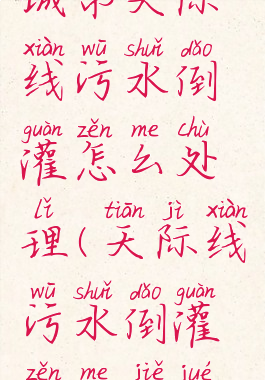 xiàn wū shuǐ dǎo
线污水倒
guàn zěn me chù
灌怎么处
lǐ tiān jì xiàn
理(天际线
wū shuǐ dǎo guàn
污水倒灌
zěn me jiě jué